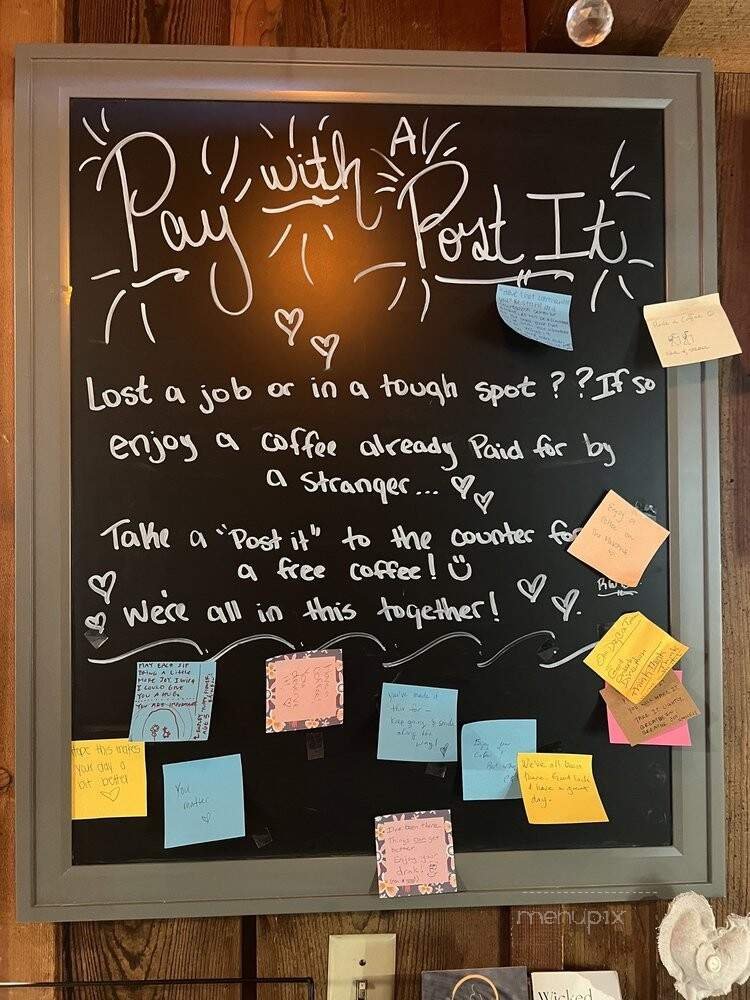 Pay with A
Post It
Lost a job or in a tough spot ?? If so
enjoy a coffee already Paid for by
a stranger...
Take a "Post it" to the counter for
a free coffee!
We're all in this together!
MAY EACH SIP
BRING A LITTLE
MORE JOY. I WISH
I COULD GIVE
YOU A HUG.
YOU ARE IMPORTANT
Hope this makes
your day a
bit better
You
matter
You've made it
this far -
keep going & smile
along the
way!
Enjoy your
We've all been
there. Good luck
& have a great
day.
I've been there.
Things can get
better.
Enjoy your
drink!
One Day at a Time
Enjoy a
coffee on
mehupix
Wicked